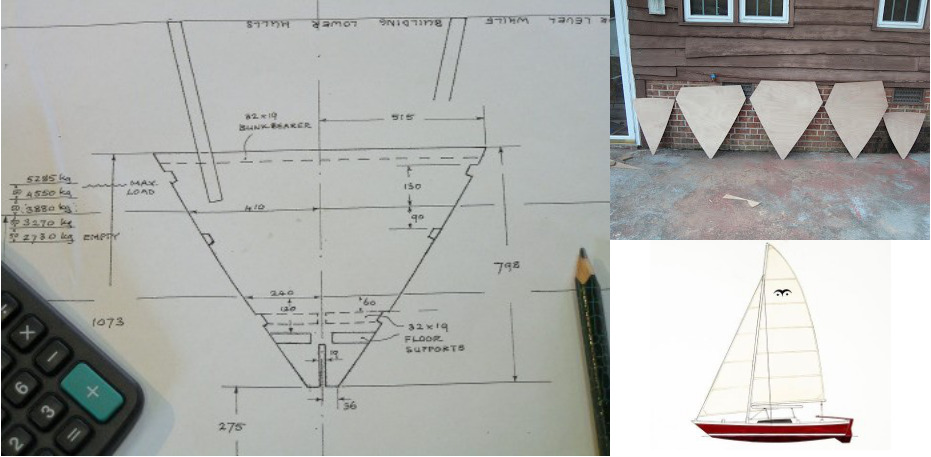 R LEVEL WHILE BUILDING LOWER HULLS
32×19
BUNKBEARER
515
5285 kg
MAX.
LOAD
4550 kg
3880 kg
3270 kg
2730 kg EMPTY
130
410
90
798
240
120
60
1073
32×19
FLOOR
SUPPORTS
19
36
275
×
+
6
3
=
2